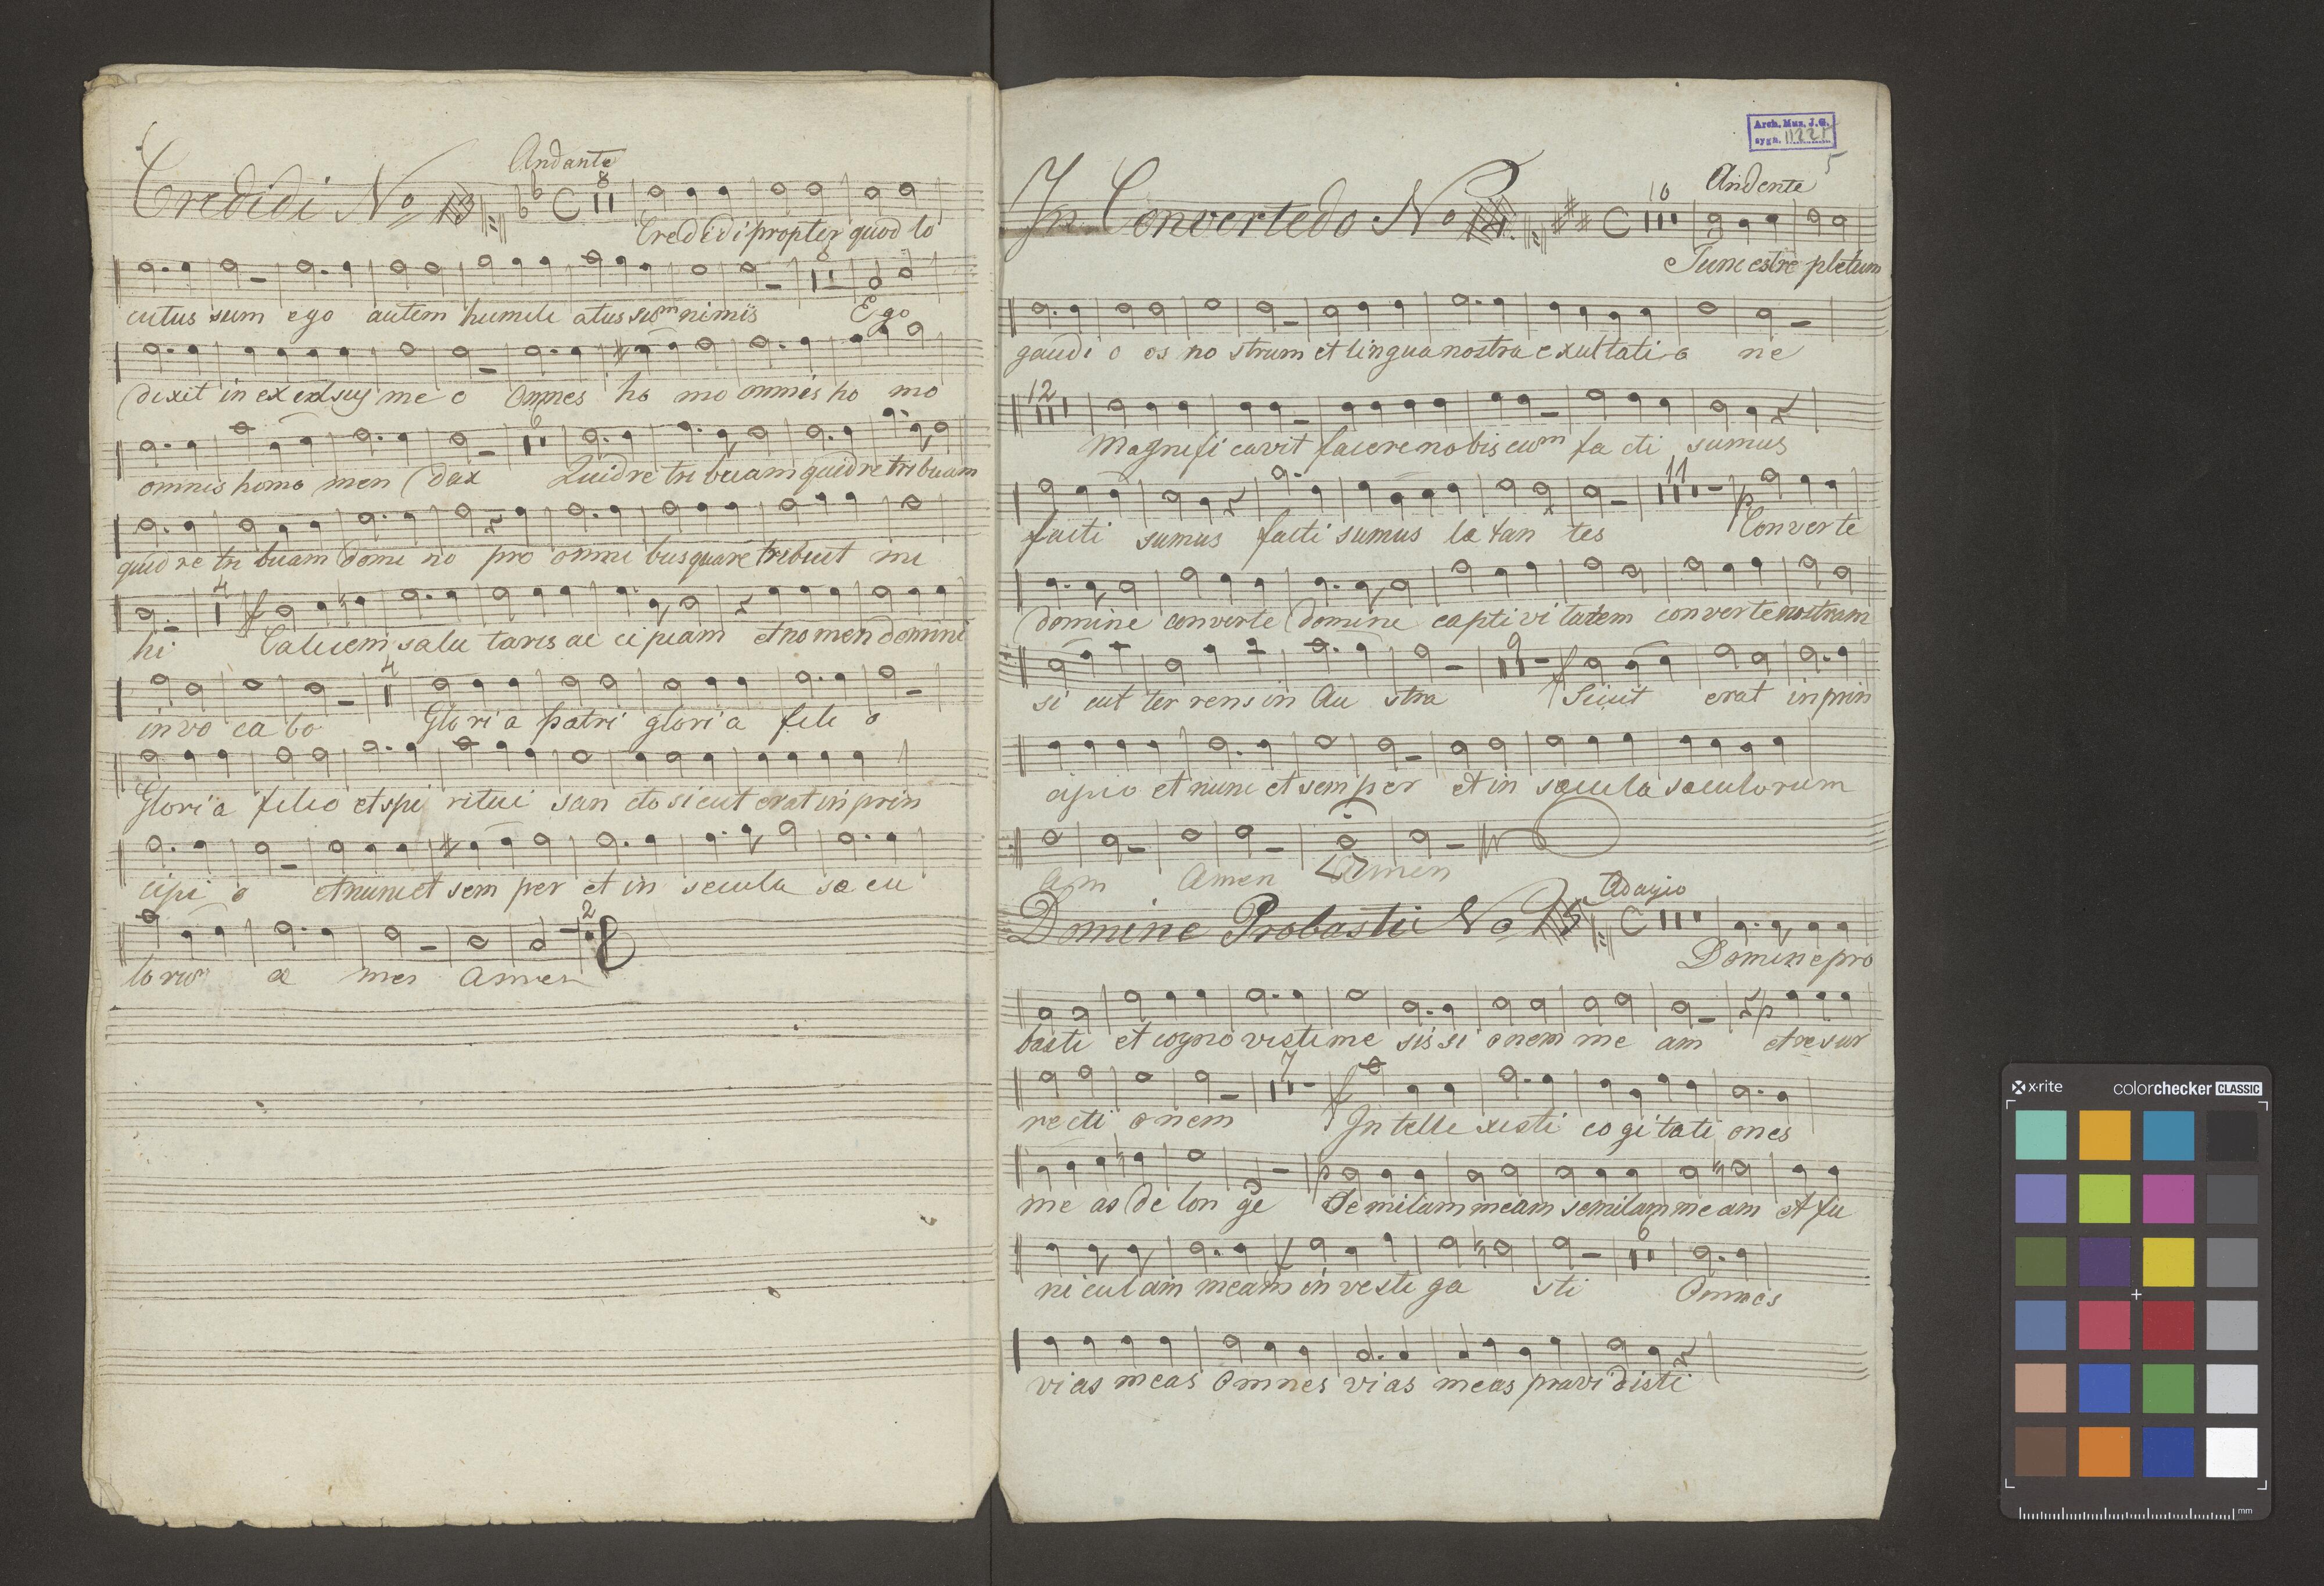 Andante
Credidi No 13
8
Credidi propter quod lo
8
cutus sum ego autem humili atus sum nimis Ego
dixit in ex me o Omnes ho mo omnis ho mo
6
omnis homo men dax Quid re tri buam quid re tribuam
quid re tri buam domi no pro omni bus quare tribuit mi
4
hi Calicem salu taris ac ci piam et no men domini
4
in vo ca bo Glori a patri glori a fili o
Glori a filio et spi ritui san cto si cut erat in prin
cipi o et nunc et sem per et in secula sæ cu
2
lorum a men amen
Arch. Muz. J.G.
sygn.
5
In Convertedo No 14
10
Andente
Tunc est re pletum
gaudi o os no strum et lingua nostra exultati o ne
12
Magnifi cavit facere nobis cum fa cti sumus
11
facti sumus facti sumus læ tan tes Converte
domine converte domine capti vi tatem converte nostram
9
si cut ter rens in Au stra Sicut erat in prin
cipio et nunc et sem per et in sæcula sæculorum
Am Amen Amen
Adagio
Domine Probasti No 15
Domine pro
basti et cogno visti me sis si onem me am et re sur
7
recti onem Intelle xisti co gi tati ones
me as de lon ge Semitam meam semitam me am et fu
6
ni culam meam in vesti ga sti Omnes
vias meas Omnes vi as meas prævi disti
x-rite
colorchecker CLASSIC
mm